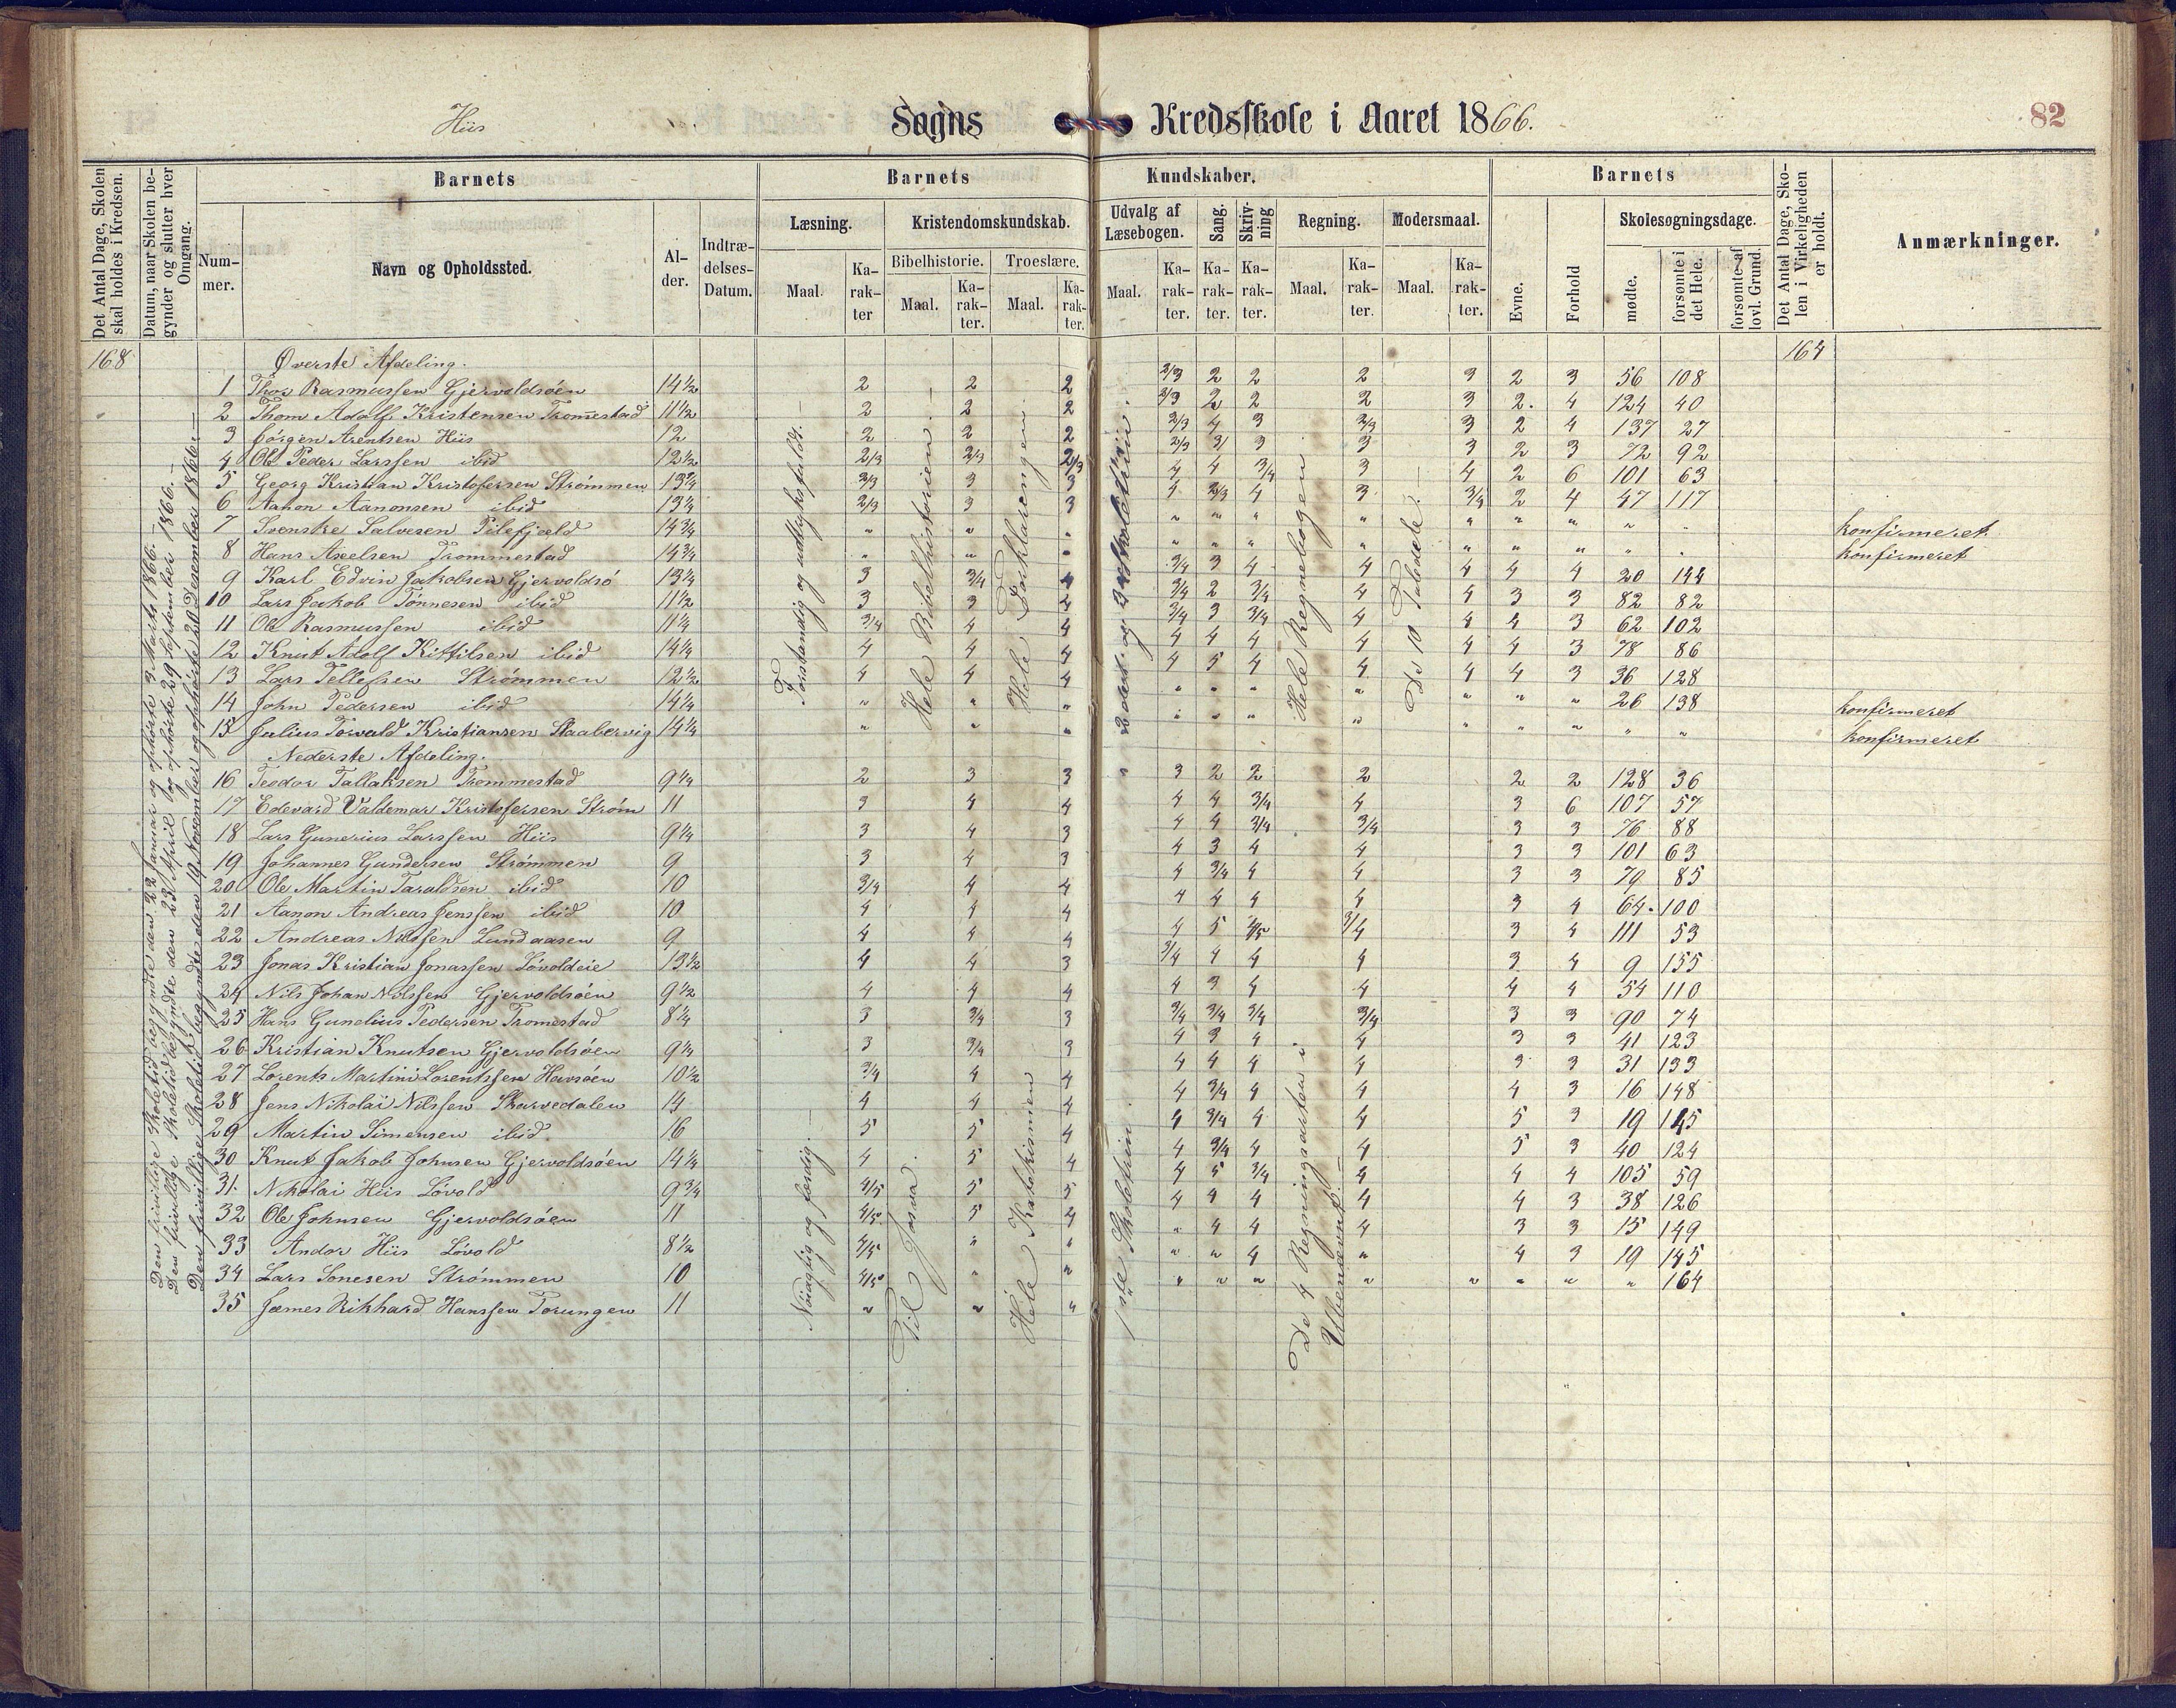 Hiis Sogns Kredsskole i Aaret 1866. 82
Det Antal Dage, Skolen skal holdes i Kredsen.
Datum, naar Skolen begynder og slutter hver Omgang.
Barnets
Num-mer.
Navn og Opholdssted.
Al-der.
Indtræ-delses-Datum.
Barnets Kundskaber.
Læsning.
Maal.
Ka-rak-ter
Kristendomskundskab.
Bibelhistorie.
Maal.
Ka-rak-ter.
Troeslære.
Maal.
Ka-rak-ter.
Udvalg af Læsebogen.
Maal.
Ka-rak-ter.
Sang.
Ka-rak-ter.
Skriv-ning
Ka-rak-ter.
Regning.
Maal.
Ka-rak-ter.
Modersmaal.
Maal.
Ka-rak-ter.
Barnets
Evne.
Forhold
Skolesøgningsdage.
mødte.
forsømte i det Hele.
forsømte af lovl. Grund.
Det Antal Dage, Skolen i Virkeligheden er holdt.
Anmærkninger.
168 Øverste Afdeling. 164
1 Thor Rasmussen Gjervoldsøen 14½ 2 2 2 2/3 2 2 2 3 2 3 56 108
2 Thom Adolf Kristensen Tromestad 11½ 2 2 2 2/3 2 2 2 3 2. 4 124 40
3 Jörgen Arentsen Hiis 12 2 2 2 2/3 4 3 2/3 3 2 4 137 27
4 Ole Peder Larssen ibid 12½ 2/3 2/3 2/3 2/3 3/ 3 3 3 2 3 72 92
5 Georg Kristian Kristofersen Strömmen 13¼ 2/3 3 3 4 4 3/4 3 4 2 6 101 63
6 Aanon Aanonsen ibid 13¼ 2/3 3 3 4 2/3 4 3 3/4 2 4 47 117
7 Svenske Salvesen Pilefjeld 14¾ " " " " " " " " " " " " konfirmeret
8 Hans Axelsen Trommestad 14¾ " " " " " " " " " " " " konfirmeret
9 Karl Edvin Jakobsen Gjervoldsö 13¼ 3 3/4 4 3/4 3 4 4 4 4 4 20 144
10 Lars Jakob Tönnesen ibid 11½ 3 3 4 3/4 2 3/4 4 4 3 3 82 82
11 Ole Rasmussen ibid 11¼ 3/4 4 4 3/4 3 3/4 4 4 4 3 62 102
12 Knut Adolf Kittilsen ibid 14¼ 4 4 4 4 4 4 4 4 4 3 78 86
13 Lars Tellefsen Strömmen 12½ 4 4 4 4 5 4 4 4 4 3 36 128
14 John Pedersen ibid 14¼ " " " " " " " " " " 26 138 konfirmeret
15 Julius Torvald Kristiansen Staabervig 14¼ " " " " " " " " " " " " konfirmeret
Nederste Afdeling.
16 Teodor Tallaksen Trommestad 9¼ 2 3 3 3 2 2 2 2 2 128 36
17 Edevard Valdemar Kristofersen Ström 11 3 4 4 4 4 3/4 4 3 6 107 57
18 Lars Gunerius Larssen Hiis 9¼ 3 4 3 4 4 3/4 3/4 3 3 76 88
19 Johannes Gundersen Strömmen 9 3 4 3 4 3 4 4 3 3 101 63
20 Ole Martin Taraldsen ibid 10 3/4 4 4 4 3/4 4 4 3 3 79 85
21 Aanon Andreas Jenssen ibid 10 4 4 4 4 4 4 4 3 4 64 100
22 Andreas Nilssen Lundaasen 9 4 4 4 4 5 4/5 3/4 3 4 111 53
23 Jonas Kristian Jonassen Lövoldeie 13½ 4 4 3 3/4 4 4 4 3 4 9 155
24 Nils Johan Nilssen Gjervoldsöen 9½ 4 4 4 4 3 4 4 4 4 54 110
25 Hans Gunelius Pedersen Tromestad 8¼ 3 3/4 3 3/4 3/4 3/4 3/4 3 3 90 74
26 Kristian Knutsen Gjervoldsöen 9¼ 3 3/4 3 4 3 4 4 3 3 41 123
27 Lorents Martini Lorentssen Havsöen 10½ 3/4 4 4 4 4 4 4 3 3 31 133
28 Jens Nikolai Nilssen Skarvedalen 14 4 4 4 4 3/4 4 4 4 3 16 148
29 Martin Simensen ibid. 16 5 5 4 4 3/4 4 4 5 3 19 145
30 Knut Jakob Johnsen Gjervoldsöen 14¼ 4 5 4 4 3/4 4 4 5 3 40 124
31. Nikolai Hiis Lövold 9¾ 4/5 5 5 4 5 3/4 4 4 4 105 59
32 Ole Johnsen Gjervoldsöen 11 4/5 5 4 4 4 4 4 4 3 38 126
33 Andor Hiis Lövold 8½ 4/5 " " " 4 4 4 3 3 15 149
34 Lars Sonesen Strömmen 10 4/5 " " " " 4 " 4 3 19 145
35 James Rikhard Hanssen Torungen 11 " " " " " " " " " " " 164
Den frivillige Skoletid begyndte den 22 Januar og ophörte 3 Marts 1866.
Den frivillige Skoletid begyndte den 23 April og ophörte 29 September 1866.
Den frivillige Skoletid begyndte den 19 November og ophörte 20 Desember 1866.
Forstandig og udtryksfuldt.
Hele Bibelhistorien.
Hele Forklaringen.
2det og 3die Skoletrin.
Hele Regnebogen
De 10 Taledele.
Nöiagtig og færdig.
Til Josva.
Hele Katekismen
1ste Skoletrin.
De 4 Regningsarter i
Ubenævnt.